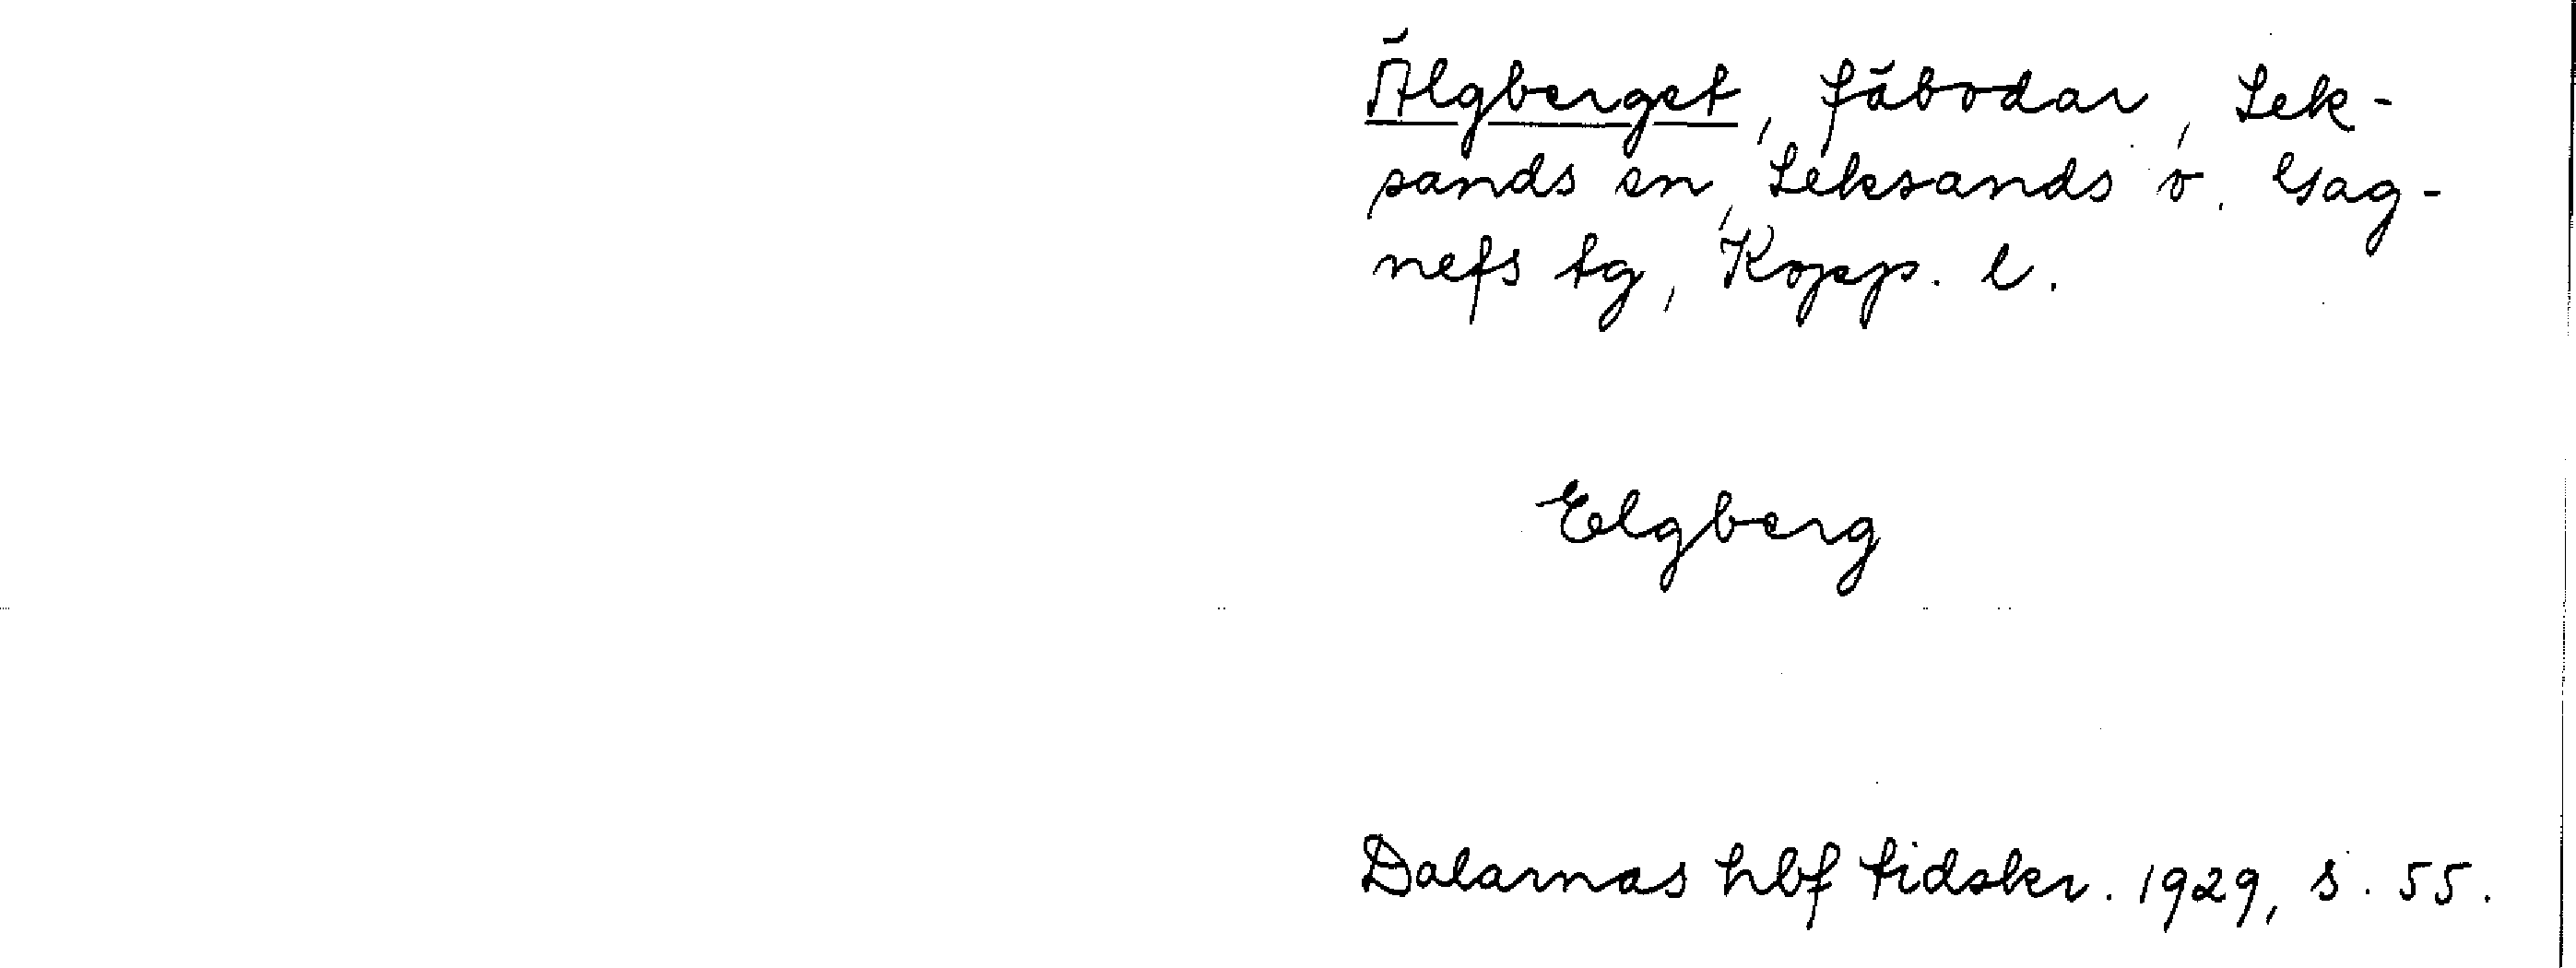 Älgberget, fäbodar, Lek-
sands sn, Leksands o. Gag-
nefs tg, Kopp. l.
Elgberg
Dalarnas hbf tidskr. 1929, s. 55.